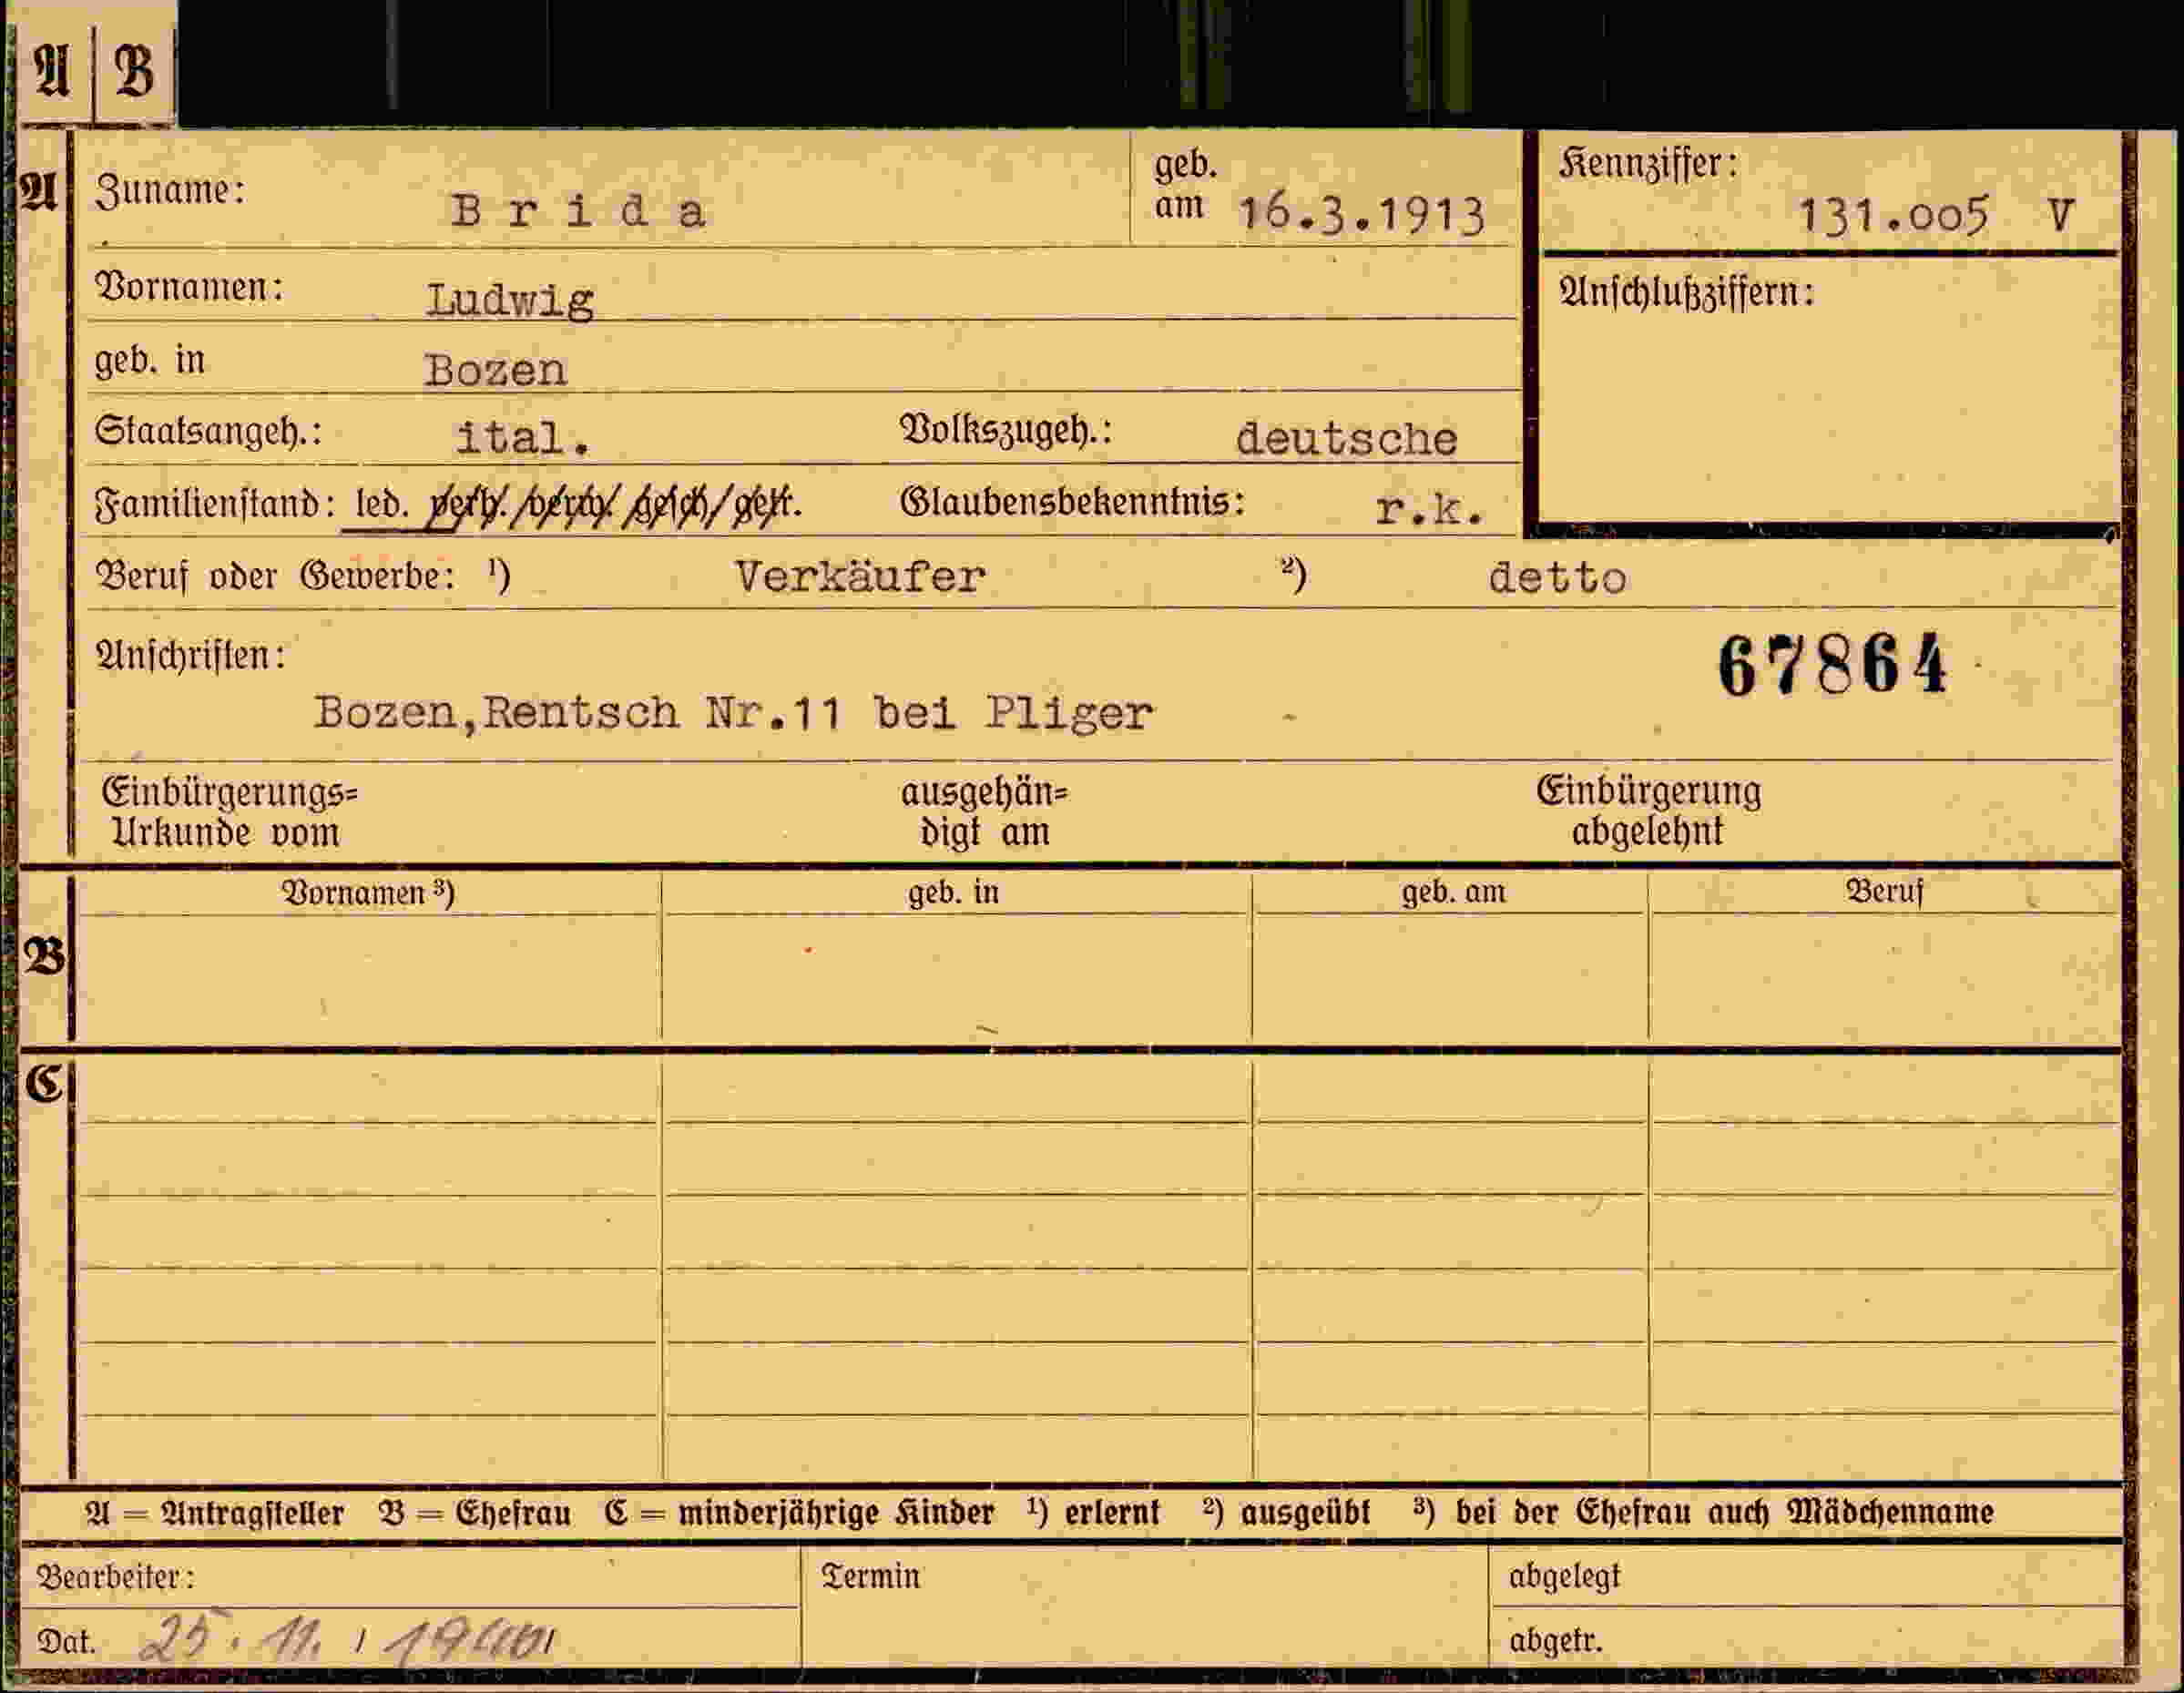 A | B
A Zuname: Brida geb. am 16.3.1913 Kennziffer: 131.oo5 V
Vornamen: Ludwig Anschlußziffern:
geb. in Bozen
Staatsangeh.: ital. Volkszugeh.: deutsche
Familienstand: led. verh./verw./gesch/getr. Glaubensbekenntnis: r.k.
Beruf oder Gewerbe: ¹) Verkäufer ²) detto
Anschriften: 67864
Bozen,Rentsch Nr.11 bei Pliger
Einbürgerungs= ausgehän= Einbürgerung
Urkunde vom digt am abgelehnt
Vornamen ³) geb. in geb. am Beruf
B
C
A = Antragsteller B = Ehefrau C = minderjährige Kinder ¹) erlernt ²) ausgeübt ³) bei der Ehefrau auch Mädchenname
Bearbeiter: Termin abgelegt
Dat. 25. 11. 1940 abgetr.